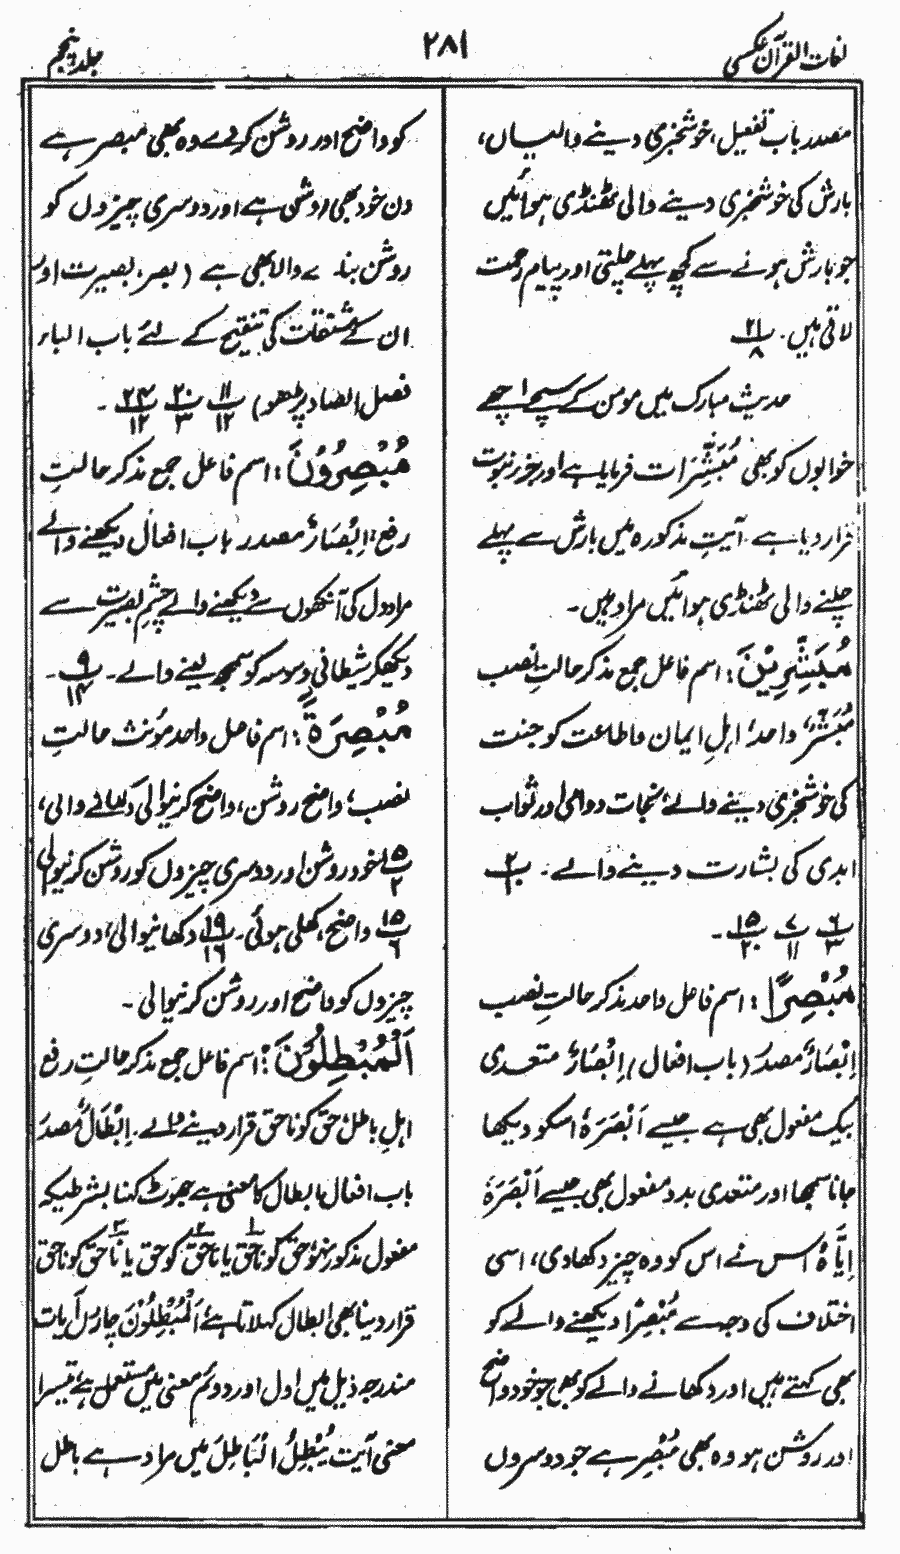 لغات القرآن عکسی
۲۸۱
جلد پنجم
مصدر باب تفعیل، خوشخبری دینے والیاں،
بارش کی خوشخبری دینے والی ٹھنڈی ہوائیں
جو بارش ہونے سے کچھ پہلے چلتی اور پیام رحمت
لاتی ہیں۔ ۲۱/۸
حدیث مبارک میں مومن کے سچے اچھے
خوابوں کو بھی مُبَشِّرَات فرمایا ہے اور جزر نبوت
قرار دیا ہے۔ آیتِ مذکورہ میں بارش سے پہلے
چلنے والی ٹھنڈی ہوائیں مراد ہیں۔
مُبَشِّرِیْنَ: اسم فاعل جمع مذکر حالتِ نصب
مُبَشِّرٌ، واحد، اہلِ ایمان و اطاعت کو جنت
کی خوشخبری دینے والے، نجات دوامی اور ثواب
ابدی کی بشارت دینے والے۔ ۲/۱۰
۶/۳ ۷/۱۱ ۱۵/۲۰۔
مُبْصِرًا: اسم فاعل واحد مذکر حالتِ نصب
اِبْصَارٌ مصدر (باب افعال) اِبْصَارٌ متعدی
بیک مفعول بھی ہے جیسے اَبْصَرَهٗ اسکو دیکھا
جانا سمجھا اور متعدی بدو مفعول بھی جیسے اَبْصَرَهٗ
اِیَّاهُ اس نے اس کو وہ چیز دکھا دی، اسی
اختلاف کی وجہ سے مُبْصِرٌ دیکھنے والے کو
بھی کہتے ہیں اور دکھانے والے کو بھی جو خود واضح
اور روشن ہو وہ بھی مُبْصِر ہے جو دوسروں
کو واضح اور روشن کر دے وہ بھی مبصر ہے
دن خود بھی روشن ہے اور دوسری چیزوں کو
روشن بنانے والا بھی ہے (بصر، بصیرت اور
ان کے مشتقات کی تنقیح کے لئے باب الباء
فصل الصاد پڑھو) ۱۱/۱۲ ۲۰/۳ ۲۴/۱۲۔
مُبْصِرُوْنَ: اسم فاعل جمع مذکر حالتِ
رفع: اِبْصَارٌ مصدر باب افعال دیکھنے والے
مراد دل کی آنکھوں سے دیکھنے والے چشمِ بصیرت سے
دیکھکر شیطانی وسوسہ کو سمجھ لینے والے۔ ۹/۱۴۔
مُبْصِرَةً: اسم فاعل واحد مؤنث حالتِ
نصب، واضح روشن، واضح کرنیوالی دکھانے والی،
۱۵/۲ خود روشن اور دوسری چیزوں کو روشن کرنیوالی
۱۵/۶ واضح، کھلی ہوئی۔ ۱۹/۱۶ دکھانیوالی، دوسری
چیزوں کو واضح اور روشن کرنیوالی۔
اَلْمُبْطِلُوْنَ: اسم فاعل جمع مذکر حالتِ رفع
اہلِ باطل، حق کو ناحق قرار دینے والے۔ اِبْطَالٌ مصدر
باب افعال ابطال کا معنی ہے جھوٹ کہنا بشرطیکہ
مفعول مذکور نہو، حق کو ناحق یا ناحق کو حق یا ناحق کو ناحق
قرار دینا بھی ابطال کہلاتا ہے، اَلْمُبْطِلُوْنَ چاروں آیات
مندرجہ ذیل میں اول اور دوئم معنی میں مستعمل ہے، تیسرا
معنی آیت یُبْطِلُ الْبَاطِلَ میں مراد ہے باطل